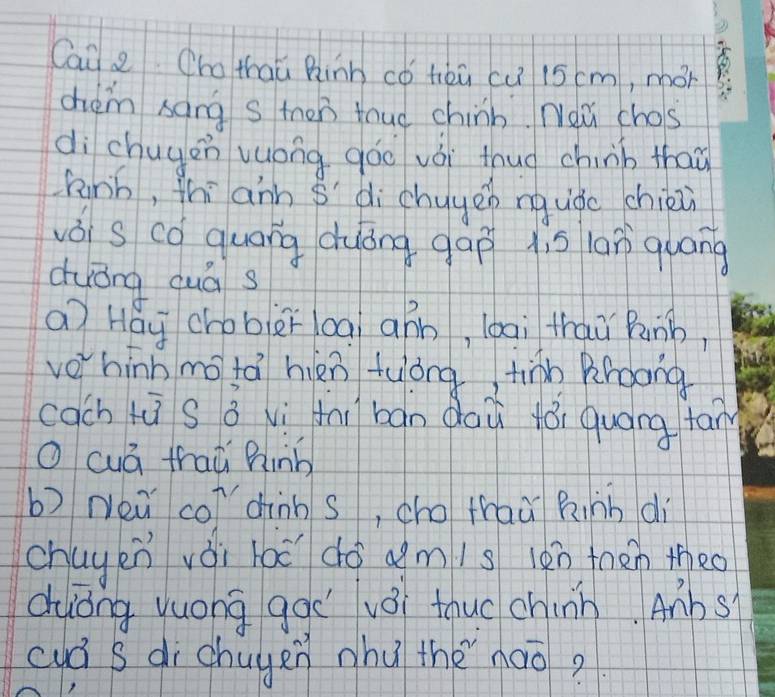 Câu 2. Cho thấu kính có tiêu cự 15cm, một
điểm sáng S trên trục chính. Nếu cho S
di chuyển vuông góc với trục chính thấu
kính, thì ảnh S' di chuyển ngược chiều
với S có quãng đường gấp 1,5 lần quãng
đường của S
a) Hãy cho biết loại ảnh, loại thấu kính,
vẽ hình mô tả hiện tượng, tính khoảng
cách từ S ở vị trí ban đầu tới quang tâm
O của thấu kính
b) Nếu cố định S, cho thấu kính di
chuyển với tốc độ 2m/s lên trên theo
đường vuông góc với trục chính. Ảnh S'
của S di chuyển như thế nào?